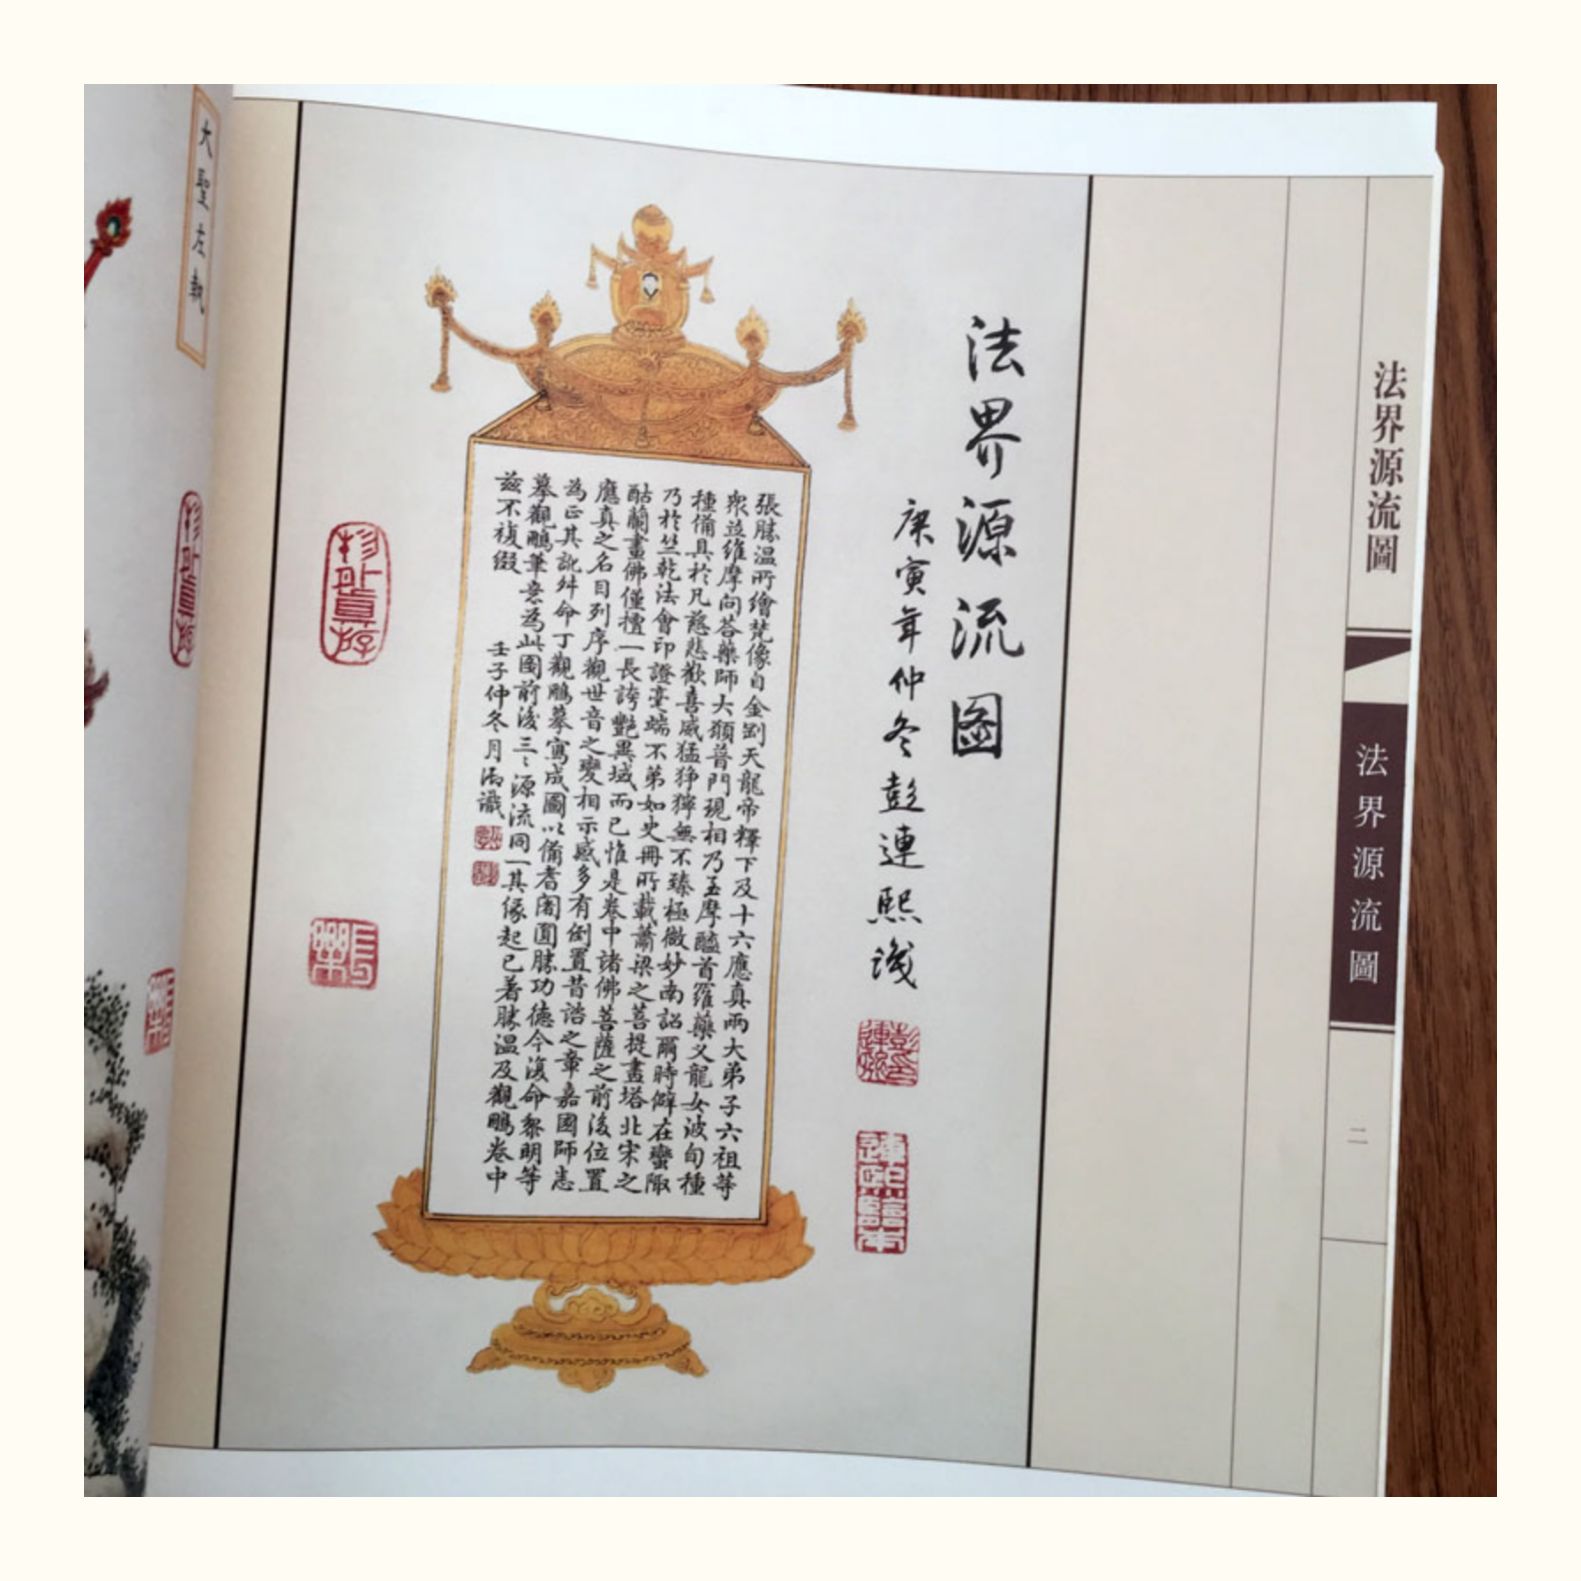 法界源流圖
法界源流圖
二
法界源流圖
庚寅年仲冬彭連熙識
張勝溫所繪梵像自金剛天龍帝釋下及十六應真兩大弟子六祖等
衆並維摩問答藥師大願普門現相乃至摩醯首羅藥叉龍女波旬種
種備具於凡慈悲歡喜威猛猙獰無不臻極微妙南詔爾時僻在蠻陬
乃於竺乾法會印證毫端不第如史冊所載蕭梁之菩提畫塔北宋之
酤蘭畫佛僅擅一長誇艷異域而已惟是卷中諸佛菩薩之前後位置
應真之名目列序觀世音之變相示感多有倒置昔諮之章嘉國師悉
為正其訛舛命丁觀鵬摹寫成圖以備耆闍圓勝功德今復命黎明等
摹觀鵬筆意為此圖前後三三源流同一其緣起已著勝溫及觀鵬卷中
茲不複綴
壬子仲冬月御識
長樂
大聖左執